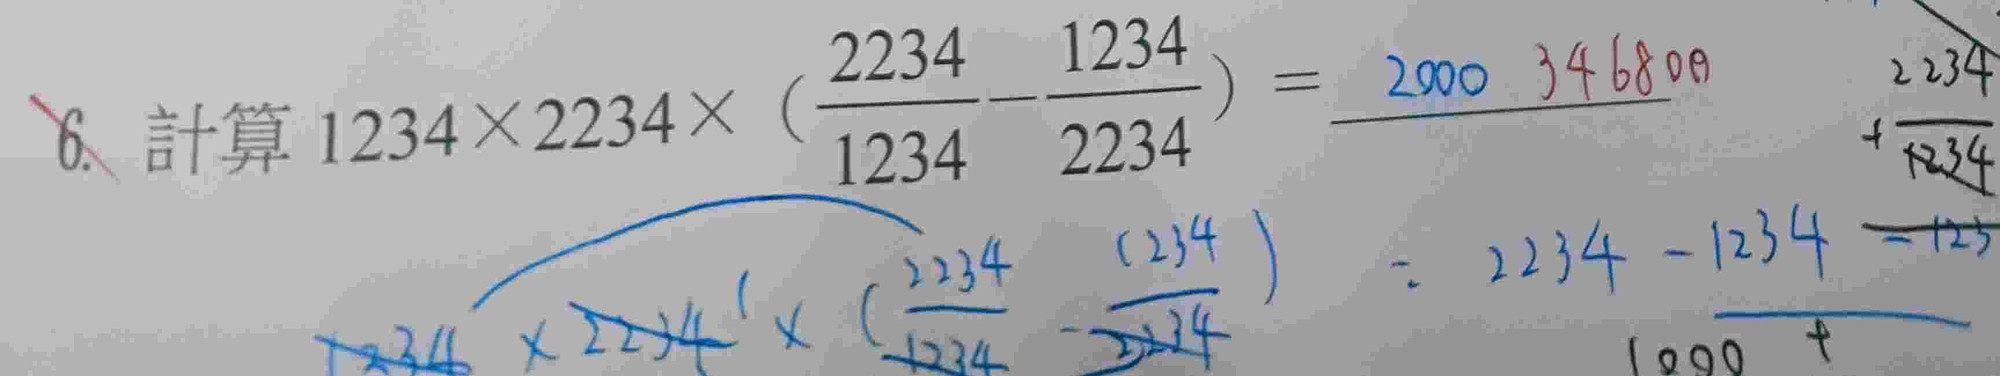 6. 計算 1234×2234×(2234/1234−1234/2234)= 2000 3468000
2234
+ 1234
1234 × 2234 1 × (2234/1234 - 1234/2234) = 2234 - 1234 - 123
1000 +